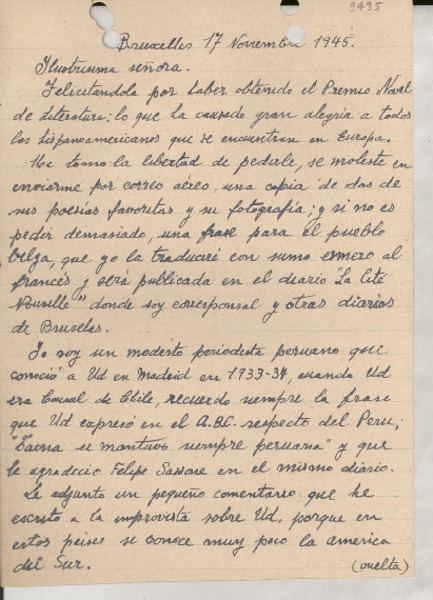 9435
Bruxelles 17 Noviembre 1945.
Ilustrisima señora.
Felicitandola por haber obtenido el Premio Novel
de Literatura: lo que ha causado gran alegria a todos
los hispanoamericanos que se encuentran en Europa.
Me tomo la libertad de pedirle, se moleste en
enviarme por correo aéreo, una copia de dos de
sus poesías favoritas y su fotografía; y si no es
pedir demasiado, una frase para el pueblo
belga, que yo la traduciré con sumo esmero al
francés y será publicada en el diario "La Cité
Nouvelle" donde soy corresponsal y otros diarios
de Bruxelas.
Yo soy un modesto periodista peruano que
conoció a Ud en Madrid en 1933-34, cuando Ud
era Consul de Chile, recuerdo siempre la frase
que Ud expresó en el A.B.C. respecto del Peru;
"Tacna se mantuvo siempre peruana" y que
le agradeció Felipe Sassone en el mismo diario.
Le adjunto un pequeño comentario que he
escrito a la improvista sobre Ud, porque en
estos paises se conoce muy poco la america
del Sur.
(vuelta)